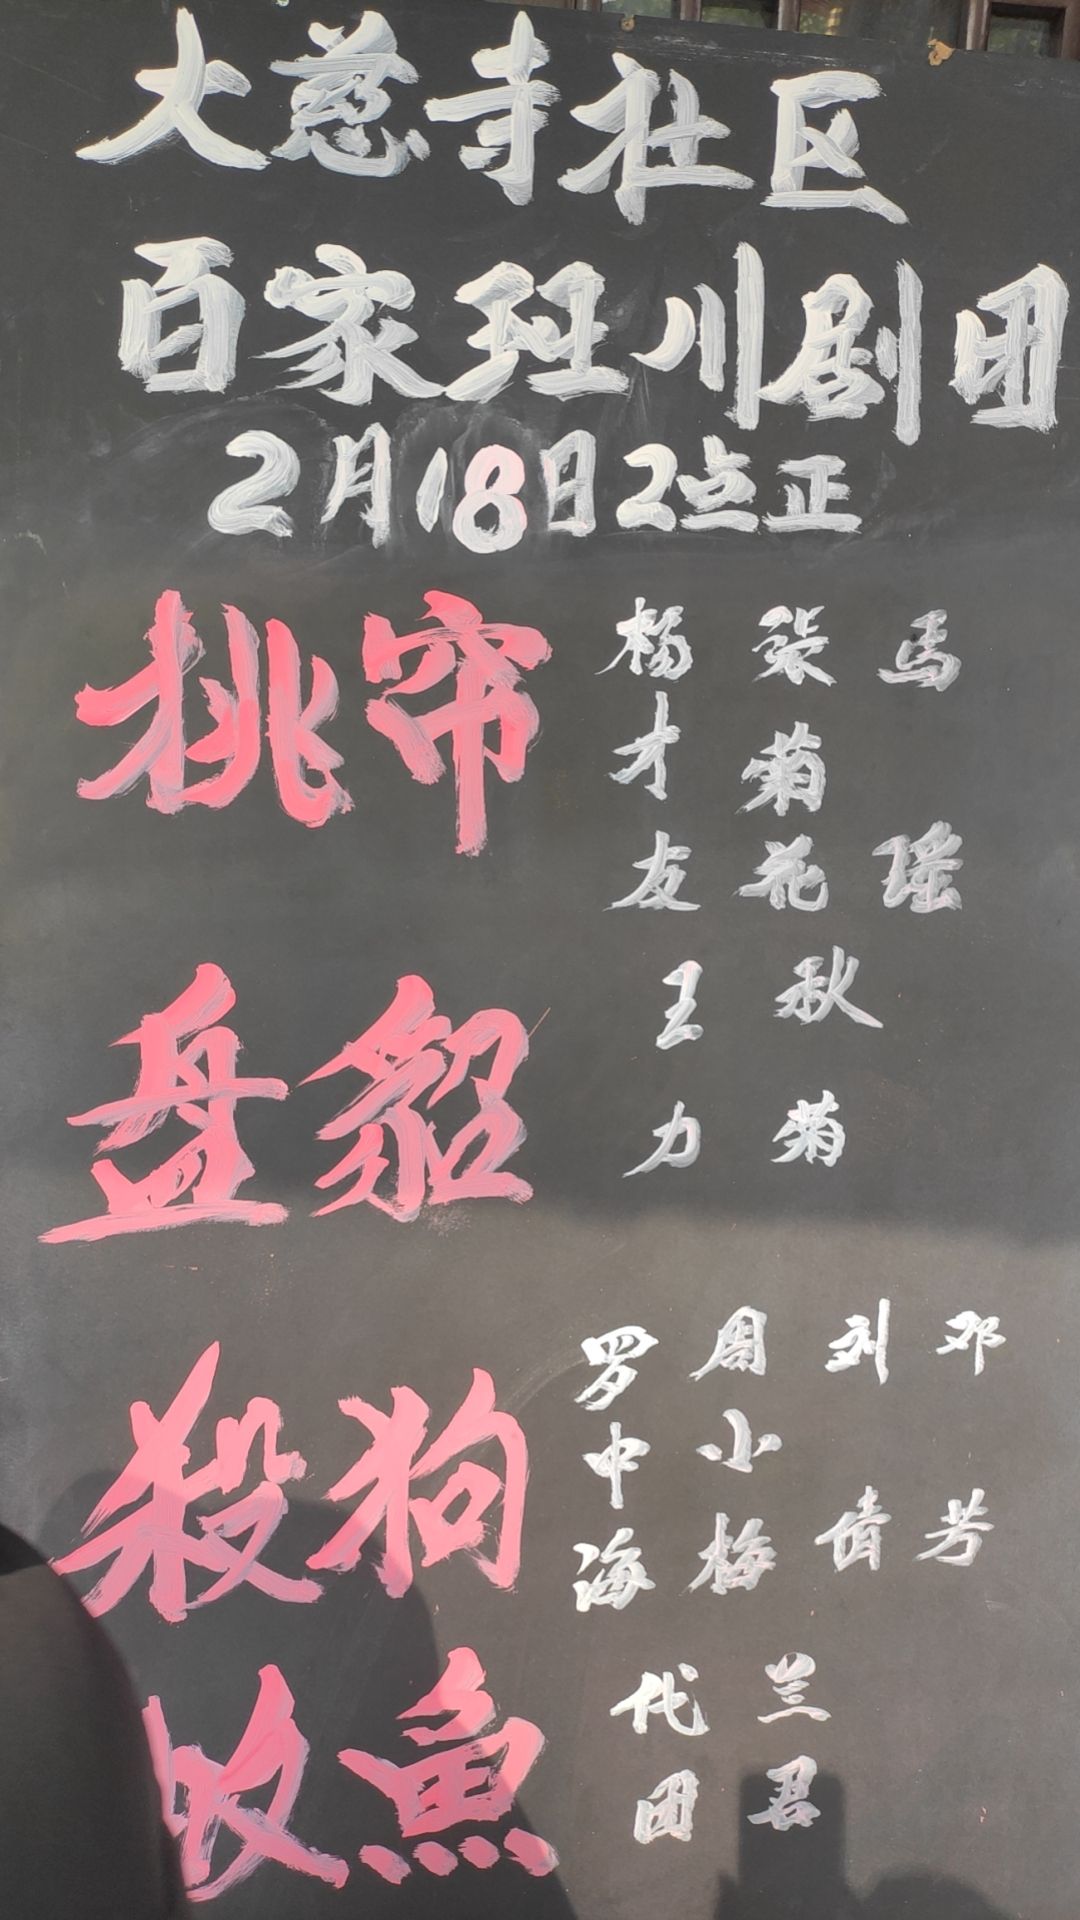 大慈寺社区
百家班川剧团
2月18日2点正
挑帘 杨才友 张菊花 马瑶
盘貂 王力 秋菊
殺狗 罗中海 周小梅 刘倩 邓芳
收魚 代团 兰君